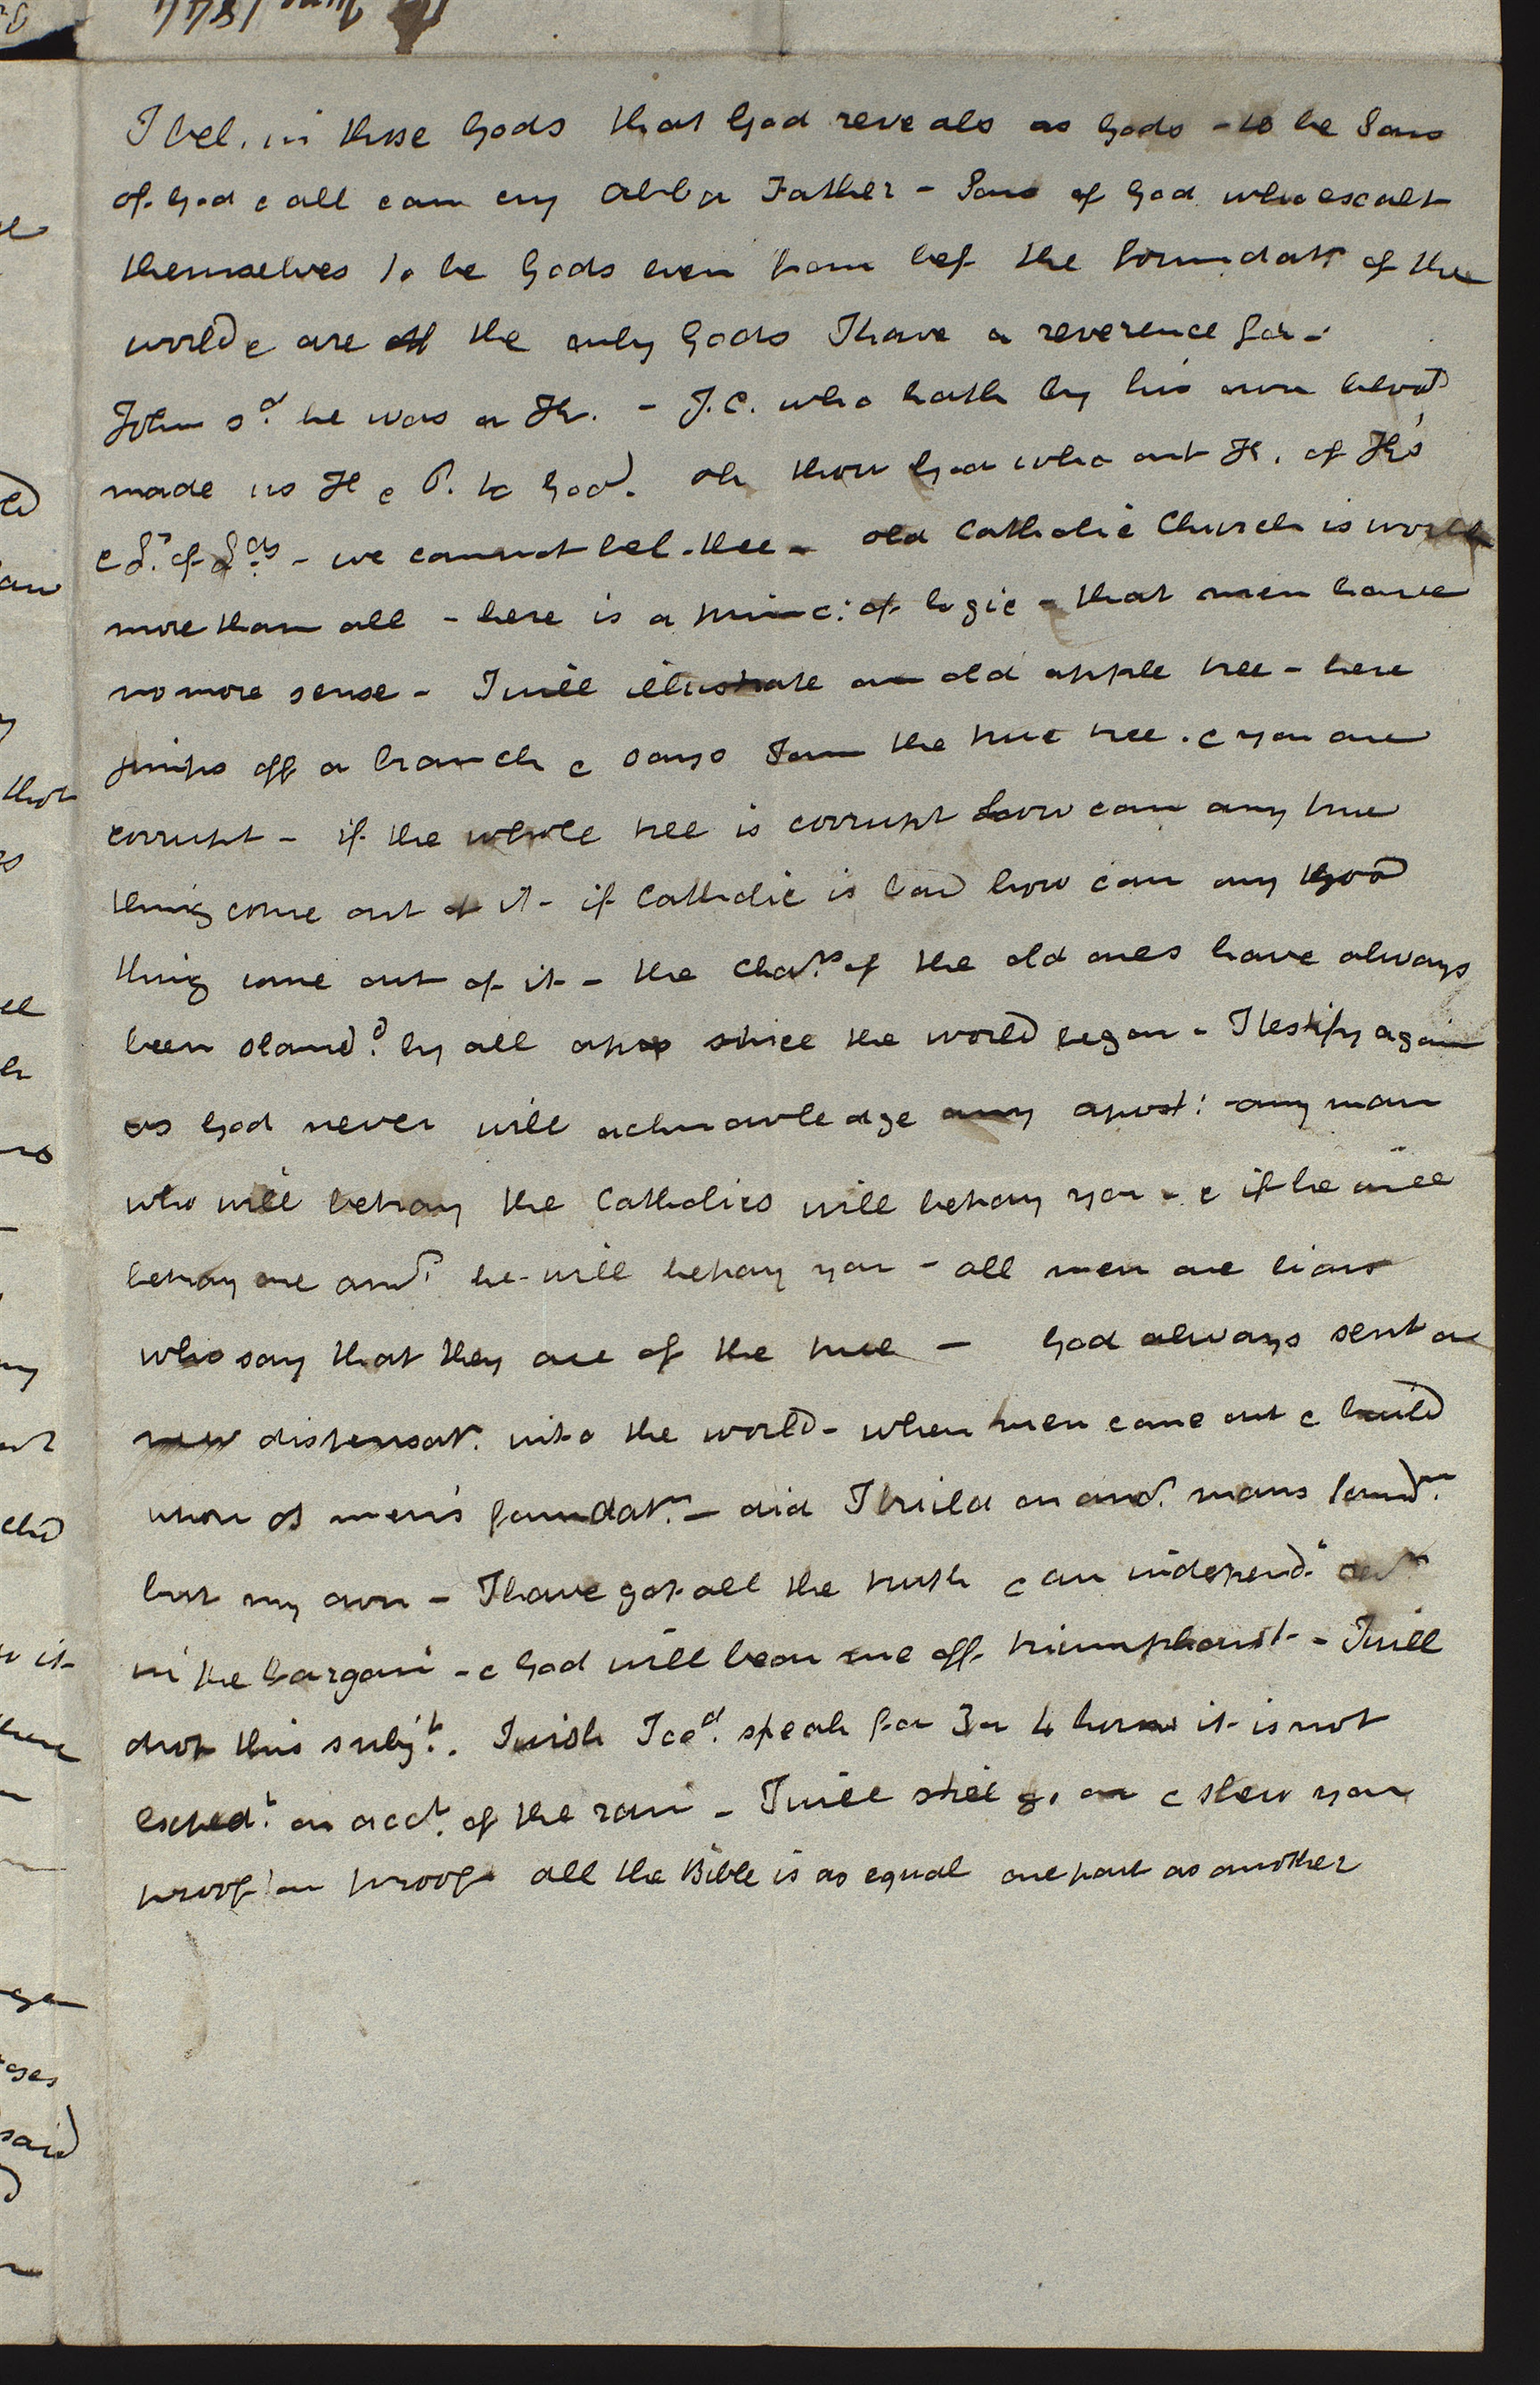 June 1844
I bel. in these Gods that God reveals as Gods - to be Sons
of God & all can cry Abba Father - Sons of God who exalt
themselves to be Gods even from bef the foundatn of the
world & are the only Gods I have a reverence for -
John sd. he was a K. - J.C. who hath by his own blood
made us K & P. to God. Oh thou God who art K. of K's
& L. of Lds - we cannot bel. thee - old Catholic Church is worth
more than all - here is a princ: of logic - that men have
no more sense - I will illustrate an old apple tree - here
jumps off a branch & says I am the true tree. & you are
corrupt - if the whole tree is corrupt how can any true
thing come out of it - if Catholic is bad how can any good
thing come out of it - the chars. of the old ones have always
been sland.d by all apos since the world began - I testify again
as God never will acknowledge any apost: - any man
who will betray the Catholics will betray you - & if he will
betray one anor. he will betray you - all men are liars
who say that they are of the true - God always sent a
new dispensatn. into the world - when men come out & build
upon o men's foundatn. - did I build on anor. mans foundn.
but my own - I have got all the truth & an independt. revn
in the bargain - & God will bear me off triumphant - I will
drop this subjt. I wish I cod. speak for 3 or 4 hours it is not
expedt. on acct. of the rain - I will still go on & shew you
proof on proof. all the Bible is as equal one part as another
that
it
ges
said